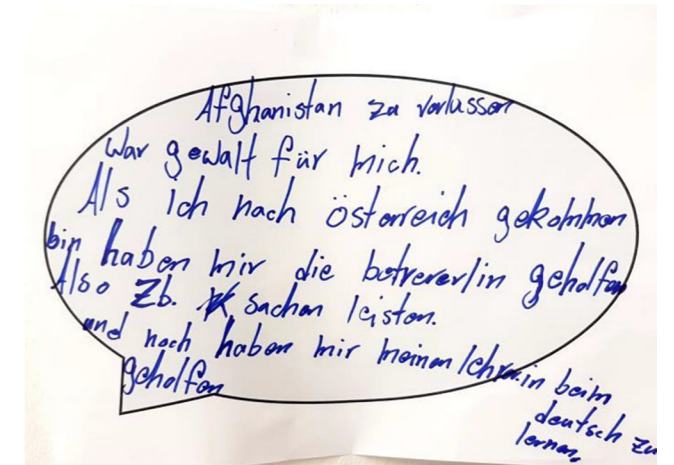 Afghanistan zu verlassen
war gewalt für mich.
Als ich nach österreich gekommen
bin haben mir die betrererlin geholfen
Also Zb. sachen leisten.
und noch haben mir meinen lehrerin beim
geholfen
deutsch zu
lernen.